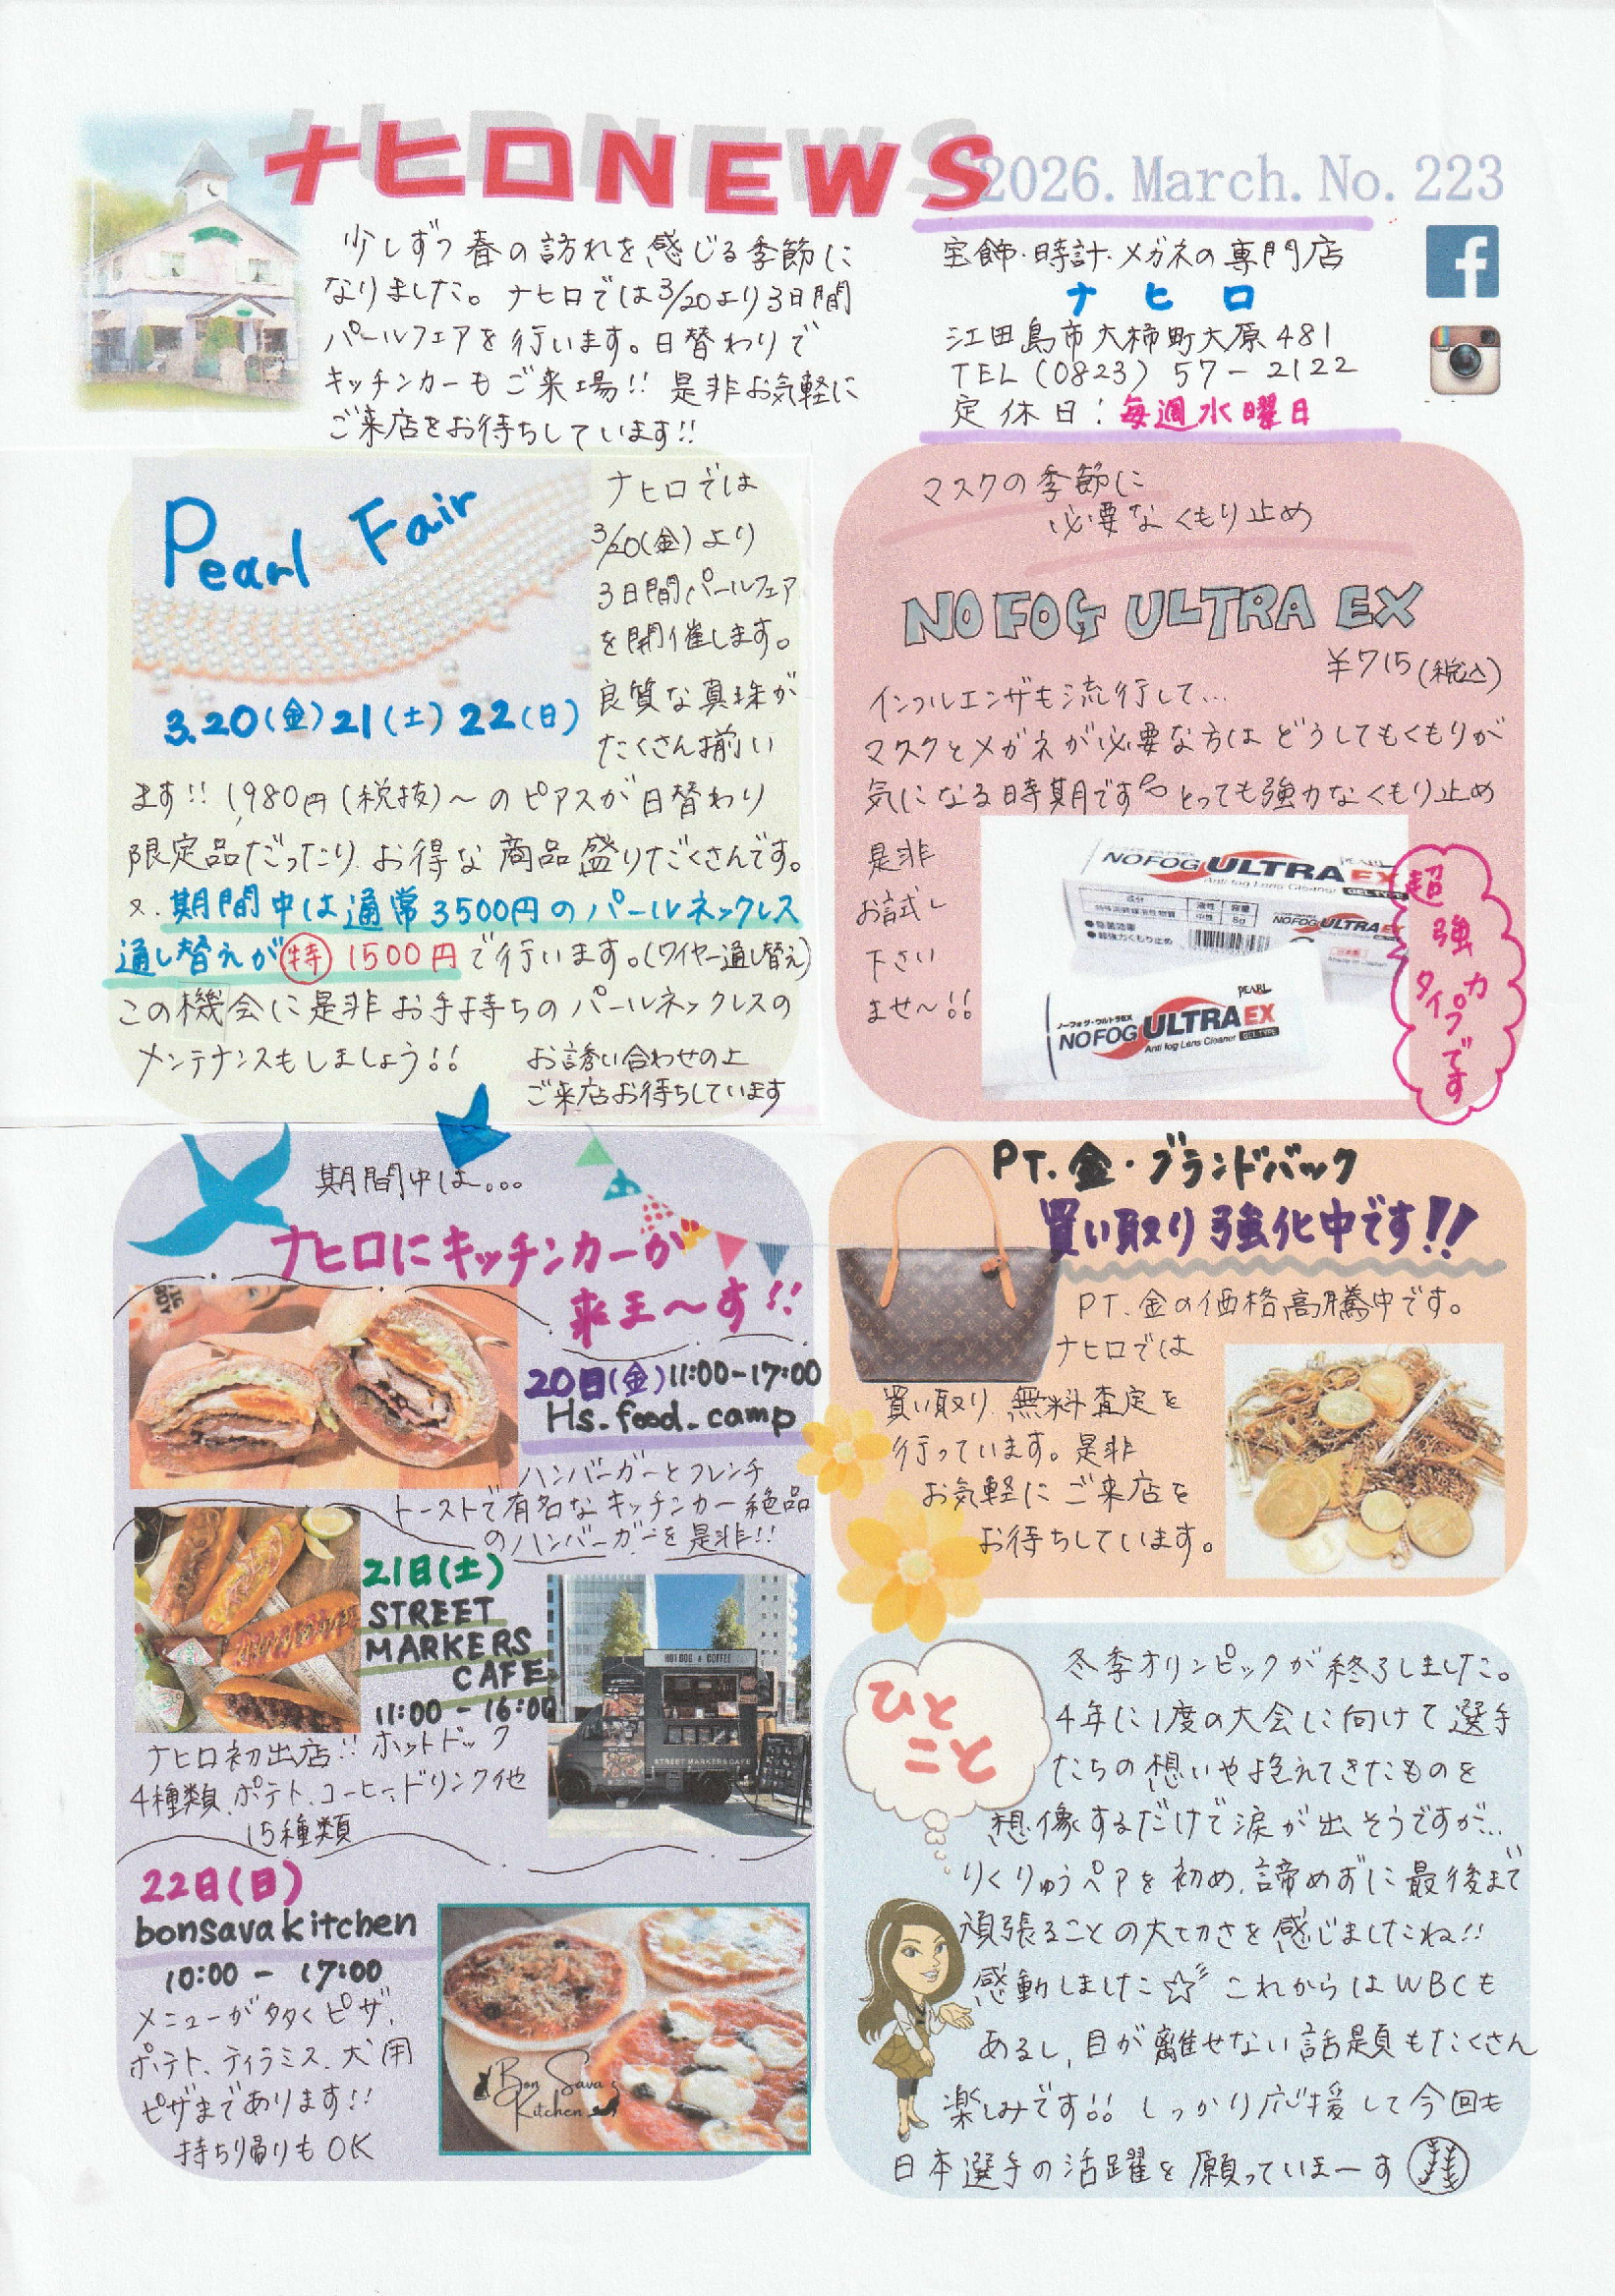 ナヒロNEWS
2026.March.No.223
少しずつ春の訪れを感じる季節に
なりました。ナヒロでは3/20より3日間
パールフェアを行います。日替わりで
キッチンカーもご来場!! 是非お気軽に
ご来店をお待ちしています!!
宝飾・時計・メガネの専門店
ナヒロ
江田島市大柿町大原481
TEL (0823) 57-2122
定休日:毎週水曜日
Pearl Fair
3.20(金)21(土)22(日)
ナヒロでは
3/20(金)より
3日間パールフェア
を開催します。
良質な真珠が
たくさん揃い
ます!! 1,980円(税抜)〜のピアスが日替わり
限定品だったり、お得な商品盛りだくさんです。
又、期間中は通常3500円のパールネックレス
通し替えが㊕1500円で行います。(ワイヤー通し替え)
この機会に是非お手持ちのパールネックレスの
メンテナンスもしましょう!!
お誘い合わせの上
ご来店お待ちしています
マスクの季節に
必要なくもり止め
NO FOG ULTRA EX
¥715(税込)
インフルエンザも流行して...
マスクとメガネが必要な方はどうしてもくもりが
気になる時期です とっても強力なくもり止め
是非
お試し
下さい
ませ〜!!
PEARL
NOFOG ULTRA EX
Anti fog Lens Cleaner GEL TYPE
成分 液性 容量
特殊界面活性物質 中性 8g
●除菌効果
●超強力くもり止め
NOFOG ULTRA EX
日本製
Made in Japan
PEARL
ノーフォグ・ウルトラEX
NOFOG ULTRA EX
Anti fog Lens Cleaner GEL TYPE
超強力タイプです
期間中は...
ナヒロにキッチンカーが
来ま〜す!!
20日(金)11:00-17:00
Hs.food.camp
ハンバーガーとフレンチ
トーストで有名なキッチンカー絶品
のハンバーガーを是非!!
21日(土)
STREET
MARKERS
CAFE
11:00 - 16:00
ナヒロ初出店!! ホットドック
4種類、ポテト、コーヒー、ドリンク他
15種類
HOT DOG & COFFEE
STREET MARKERS CAFE
22日(日)
bonsava kitchen
10:00 - 17:00
メニューが多くピザ、
ポテト、ティラミス、犬用
ピザまであります!!
持ち帰りもOK
Bon Sava
Kitchen
PT.金・ブランドバック
買い取り強化中です!!
PT.金の価格高騰中です。
ナヒロでは
買い取り、無料査定を
行っています。是非
お気軽にご来店を
お待ちしています。
ひと
こと
冬季オリンピックが終了しました。
4年に1度の大会に向けて選手
たちの想いや抱えてきたものを
想像するだけで涙が出そうですが...
りくりゅうペアを初め、諦めずに最後まで
頑張ることの大切さを感じましたね!!
感動しました☆ これからはWBCも
あるし、目が離せない話題もたくさん
楽しみです!! しっかり応援して今回も
日本選手の活躍を願っていまーす